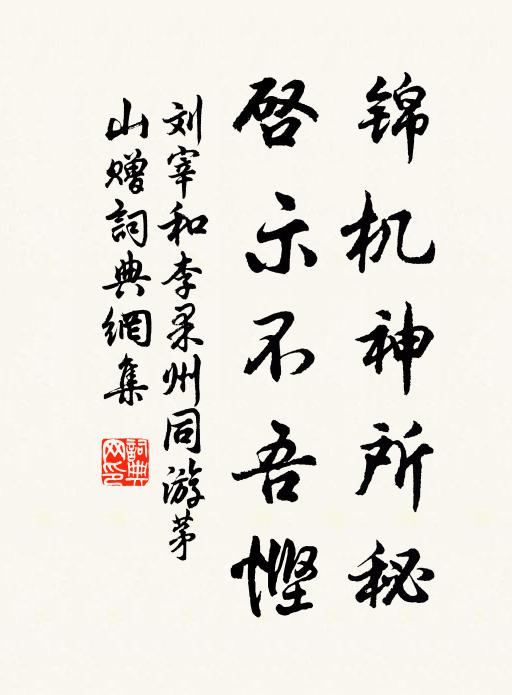 锦机神所秘
啓示不吾悭
刘宰和李果州同游茅
山赠詞典網集
詞典
网印